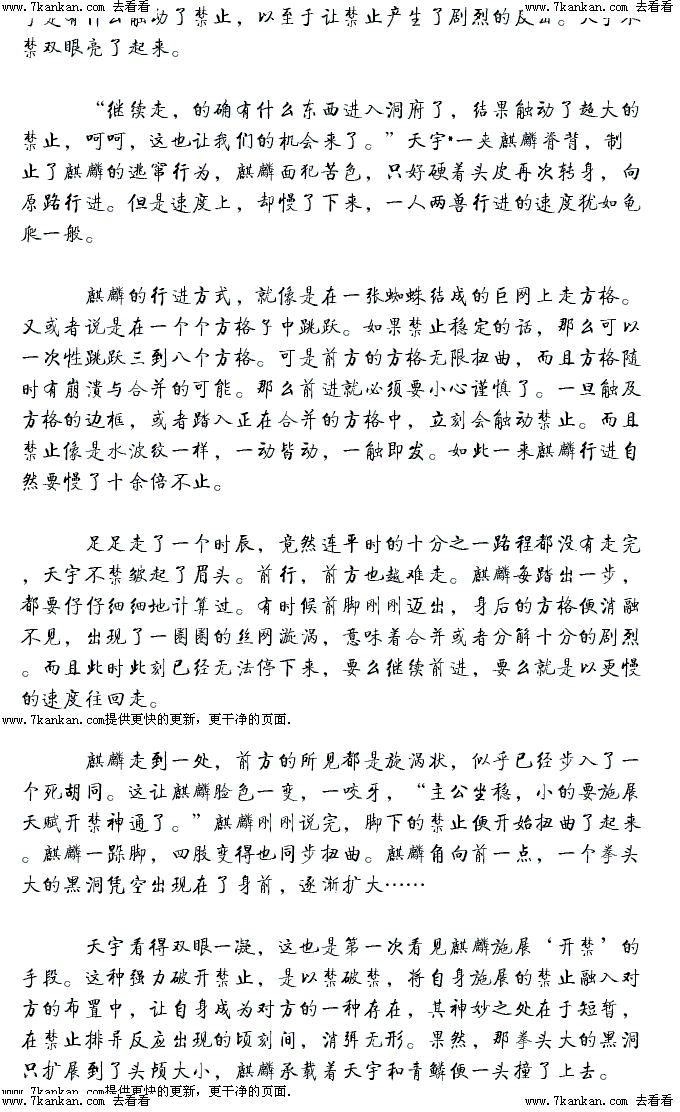 www.7kankan.com 去看看 www.7kankan.com 去看看
禁双眼亮了起来。
“继续走，的确有什么东西进入洞府了，结果触动了超大的
禁止，呵呵，这也让我们的机会来了。”天宇*一夹麒麟脊背，制
止了麒麟的逃窜行为，麒麟面犯苦色，只好硬着头皮再次转身，向
原路行进。但是速度上，却慢了下来，一人两兽行进的速度犹如龟
爬一般。
麒麟的行进方式，就像是在一张蜘蛛结成的巨网上走方格。
又或者说是在一个个方格子中跳跃。如果禁止稳定的话，那么可以
一次性跳跃三到八个方格。可是前方的方格无限扭曲，而且方格随
时有崩溃与合并的可能。那么前进就必须要小心谨慎了。一旦触及
方格的边框，或者踏入正在合并的方格中，立刻会触动禁止。而且
禁止像是水波纹一样，一动皆动，一触即发。如此一来麒麟行进自
然要慢了十余倍不止。
足足走了一个时辰，竟然连平时的十分之一路程都没有走完
，天宇不禁皱起了眉头。前行，前方也越难走。麒麟每踏出一步，
都要仔仔细细地计算过。有时候前脚刚刚迈出，身后的方格便消融
不见，出现了一圈圈的丝网漩涡，意味着合并或者分解十分的剧烈
。而且此时此刻已经无法停下来，要么继续前进，要么就是以更慢
的速度往回走。
www.7kankan.com提供更快的更新，更干净的页面.
麒麟走到一处，前方的所见都是旋涡状，似乎已经步入了一
个死胡同。这让麒麟脸色一变，一咬牙，“主公坐稳，小的要施展
天赋开禁神通了。”麒麟刚刚说完，脚下的禁止便开始扭曲了起来
。麒麟一跺脚，四肢变得也同步扭曲。麒麟角向前一点，一个拳头
大的黑洞凭空出现在了身前，逐渐扩大……
天宇看得双眼一凝，这也是第一次看见麒麟施展‘开禁’的
手段。这种强力破开禁止，是以禁破禁，将自身施展的禁止融入对
方的布置中，让自身成为对方的一种存在，其神妙之处在于短暂，
在禁止排异反应出现的顷刻间，消弭无形。果然，那拳头大的黑洞
只扩展到了头颅大小，麒麟承载着天宇和青鳞便一头撞了上去。
www.7kankan.com提供更快的更新，更干净的页面.
www.7kankan.com 去看看 www.7kankan.com 去看看